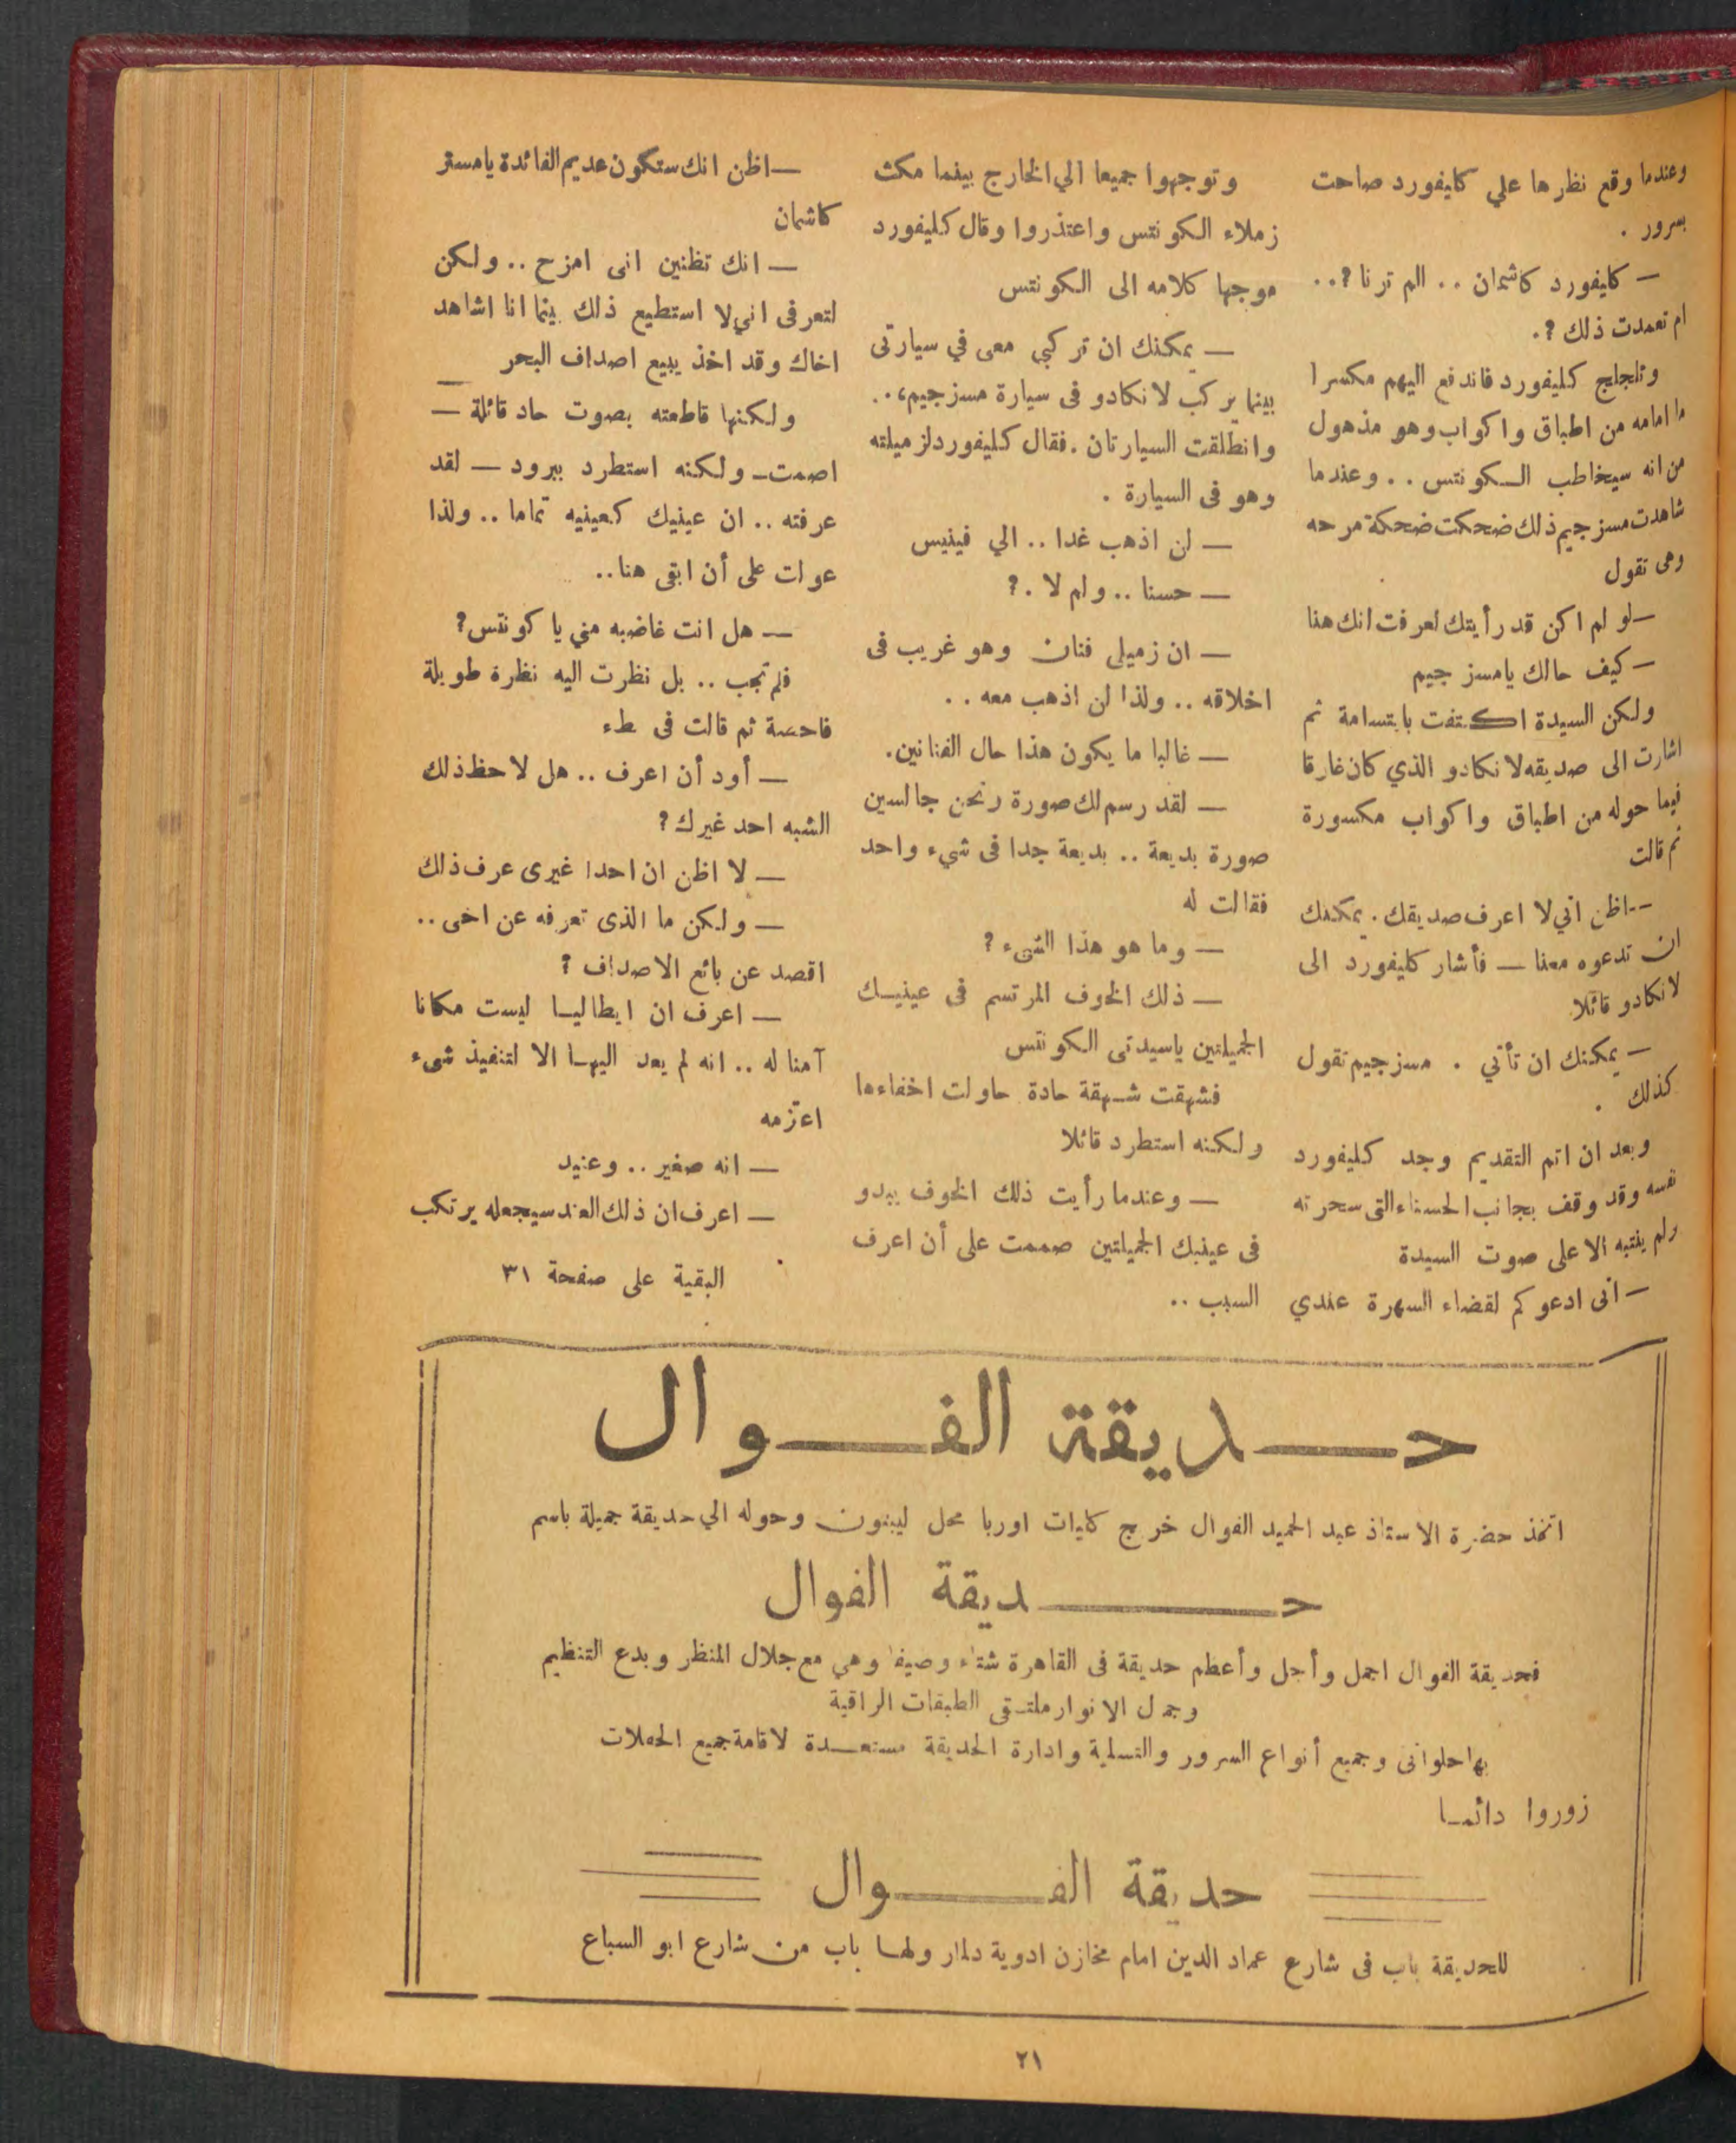 وعندما وقع نظرها علي كليفورد صاحت
بسرور .
— كليفورد كاشمان .. الم ترنا ؟..
ام تعمدت ذلك ؟.
وتلجلج كليفورد فاندفع اليهم مكسرا
ما امامه من اطباق واكواب وهو مذهول
من انه سيخاطب الكونتس .. وعندما
شاهدت مسز جيم ذلك ضحكت ضحكة مرحه
وهى تقول
— لو لم اكن قد رأيتك لعرفت انك هنا
— كيف حالك يامسز جيم
ولكن السيدة اكتفت بابتسامة ثم
اشارت الى صديقه لانكادو الذي كان غارقا
فيما حوله من اطباق واكواب مكسورة
ثم قالت
— اظن اني لا اعرف صديقك . يمكنك
ان تدعوه معنا — فأشار كليفورد الى
لانكادو قائلا
— يمكنك ان تأتي . مسز جيم تقول
كذلك .
وبعد ان اتم التقديم وجد كليفورد
نفسه وقد وقف بجانب الحسناء التى سحرته
ولم ينتبه الا على صوت السيدة
— انى ادعوكم لقضاء السهرة عندي
وتوجهوا جميعا الي الخارج بينما مكث
زملاء الكونتس واعتذروا وقال كليفورد
موجها كلامه الى الكونتس
— يمكنك ان تركبي معى في سيارتى
بينما يركب لانكادو فى سيارة مسز جيم ..
وانطلقت السيارتان . فقال كليفورد لزميلته
وهو فى السيارة .
— لن اذهب غدا .. الي فينيس
— حسنا .. ولم لا .؟
— ان زميلى فنان وهو غريب فى
اخلاقه .. ولذا لن اذهب معه ..
— غالبا ما يكون هذا حال الفنانين .
— لقد رسم لك صورة ونحن جالسين
صورة بديعة .. بديعة جدا فى شيء واحد
فقالت له
— وما هو هذا الشىء ؟
— ذلك الخوف المرتسم فى عينيك
الجميلتين ياسيدتى الكونتس
فشهقت شهقة حادة حاولت اخفاءها
ولكنه استطرد قائلا
— وعندما رأيت ذلك الخوف يبدو
فى عينيك الجميلتين صممت على أن اعرف
السبب ..
— اظن انك ستكون عديم الفائدة يامستر
كاشمان
— انك تظنين انى امزح .. ولكن
لتعرفى اني لا استطيع ذلك بينما انا اشاهد
اخاك وقد اخذ يبيع اصداف البحر
ولكنها قاطعته بصوت حاد قائلة —
اصمت — ولكنه استطرد ببرود — لقد
عرفته .. ان عينيك كعينيه تماما .. ولذا
عولت على أن ابقى هنا ..
— هل انت غاضبه مني يا كونتس ؟
فلم تجب .. بل نظرت اليه نظرة طويلة
فاحصة ثم قالت فى طء
— أود أن اعرف .. هل لاحظ ذلك
الشبه احد غيرك ؟
— لا اظن ان احدا غيرى عرف ذلك
— ولكن ما الذى تعرفه عن اخى ..
اقصد عن بائع الاصداف ؟
— اعرف ان ايطاليا ليست مكانا
آمنا له .. انه لم يعد اليها الا لتنفيذ شىء
اعتزمه
— انه صغير .. وعنيد
— اعرف ان ذلك العند سيجعله يرتكب
البقية على صفحة ٣١
حديقة الفوال
اتخذ حضرة الاستاذ عبد الحميد الفوال خرج كليات اوربا محل ليبنون وحوله الي حديقة جميلة باسم
حديقة الفوال
فحديقة الفوال اجمل وأجل وأعظم حديقة فى القاهرة شتاء وصيفا وهي مع جلال المنظر وبدع التنظيم
وجمال الانوار ملتقى الطبقات الراقية
بها حلوانى وجميع أنواع السرور والتسلية وادارة الحديقة مستعدة لاقامة جميع الحفلات
زوروا دائما
حديقة الفوال
للحديقة باب فى شارع عماد الدين امام مخازن ادوية دلمار ولها باب من شارع ابو السباع
٢١